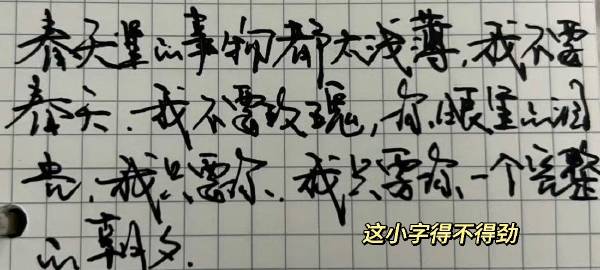 春天里的事物都太浅薄,我不需
春天.我不需玫瑰,你眼里的
我只需你.我只需你一个完整
的朝夕.
这小字得不得劲